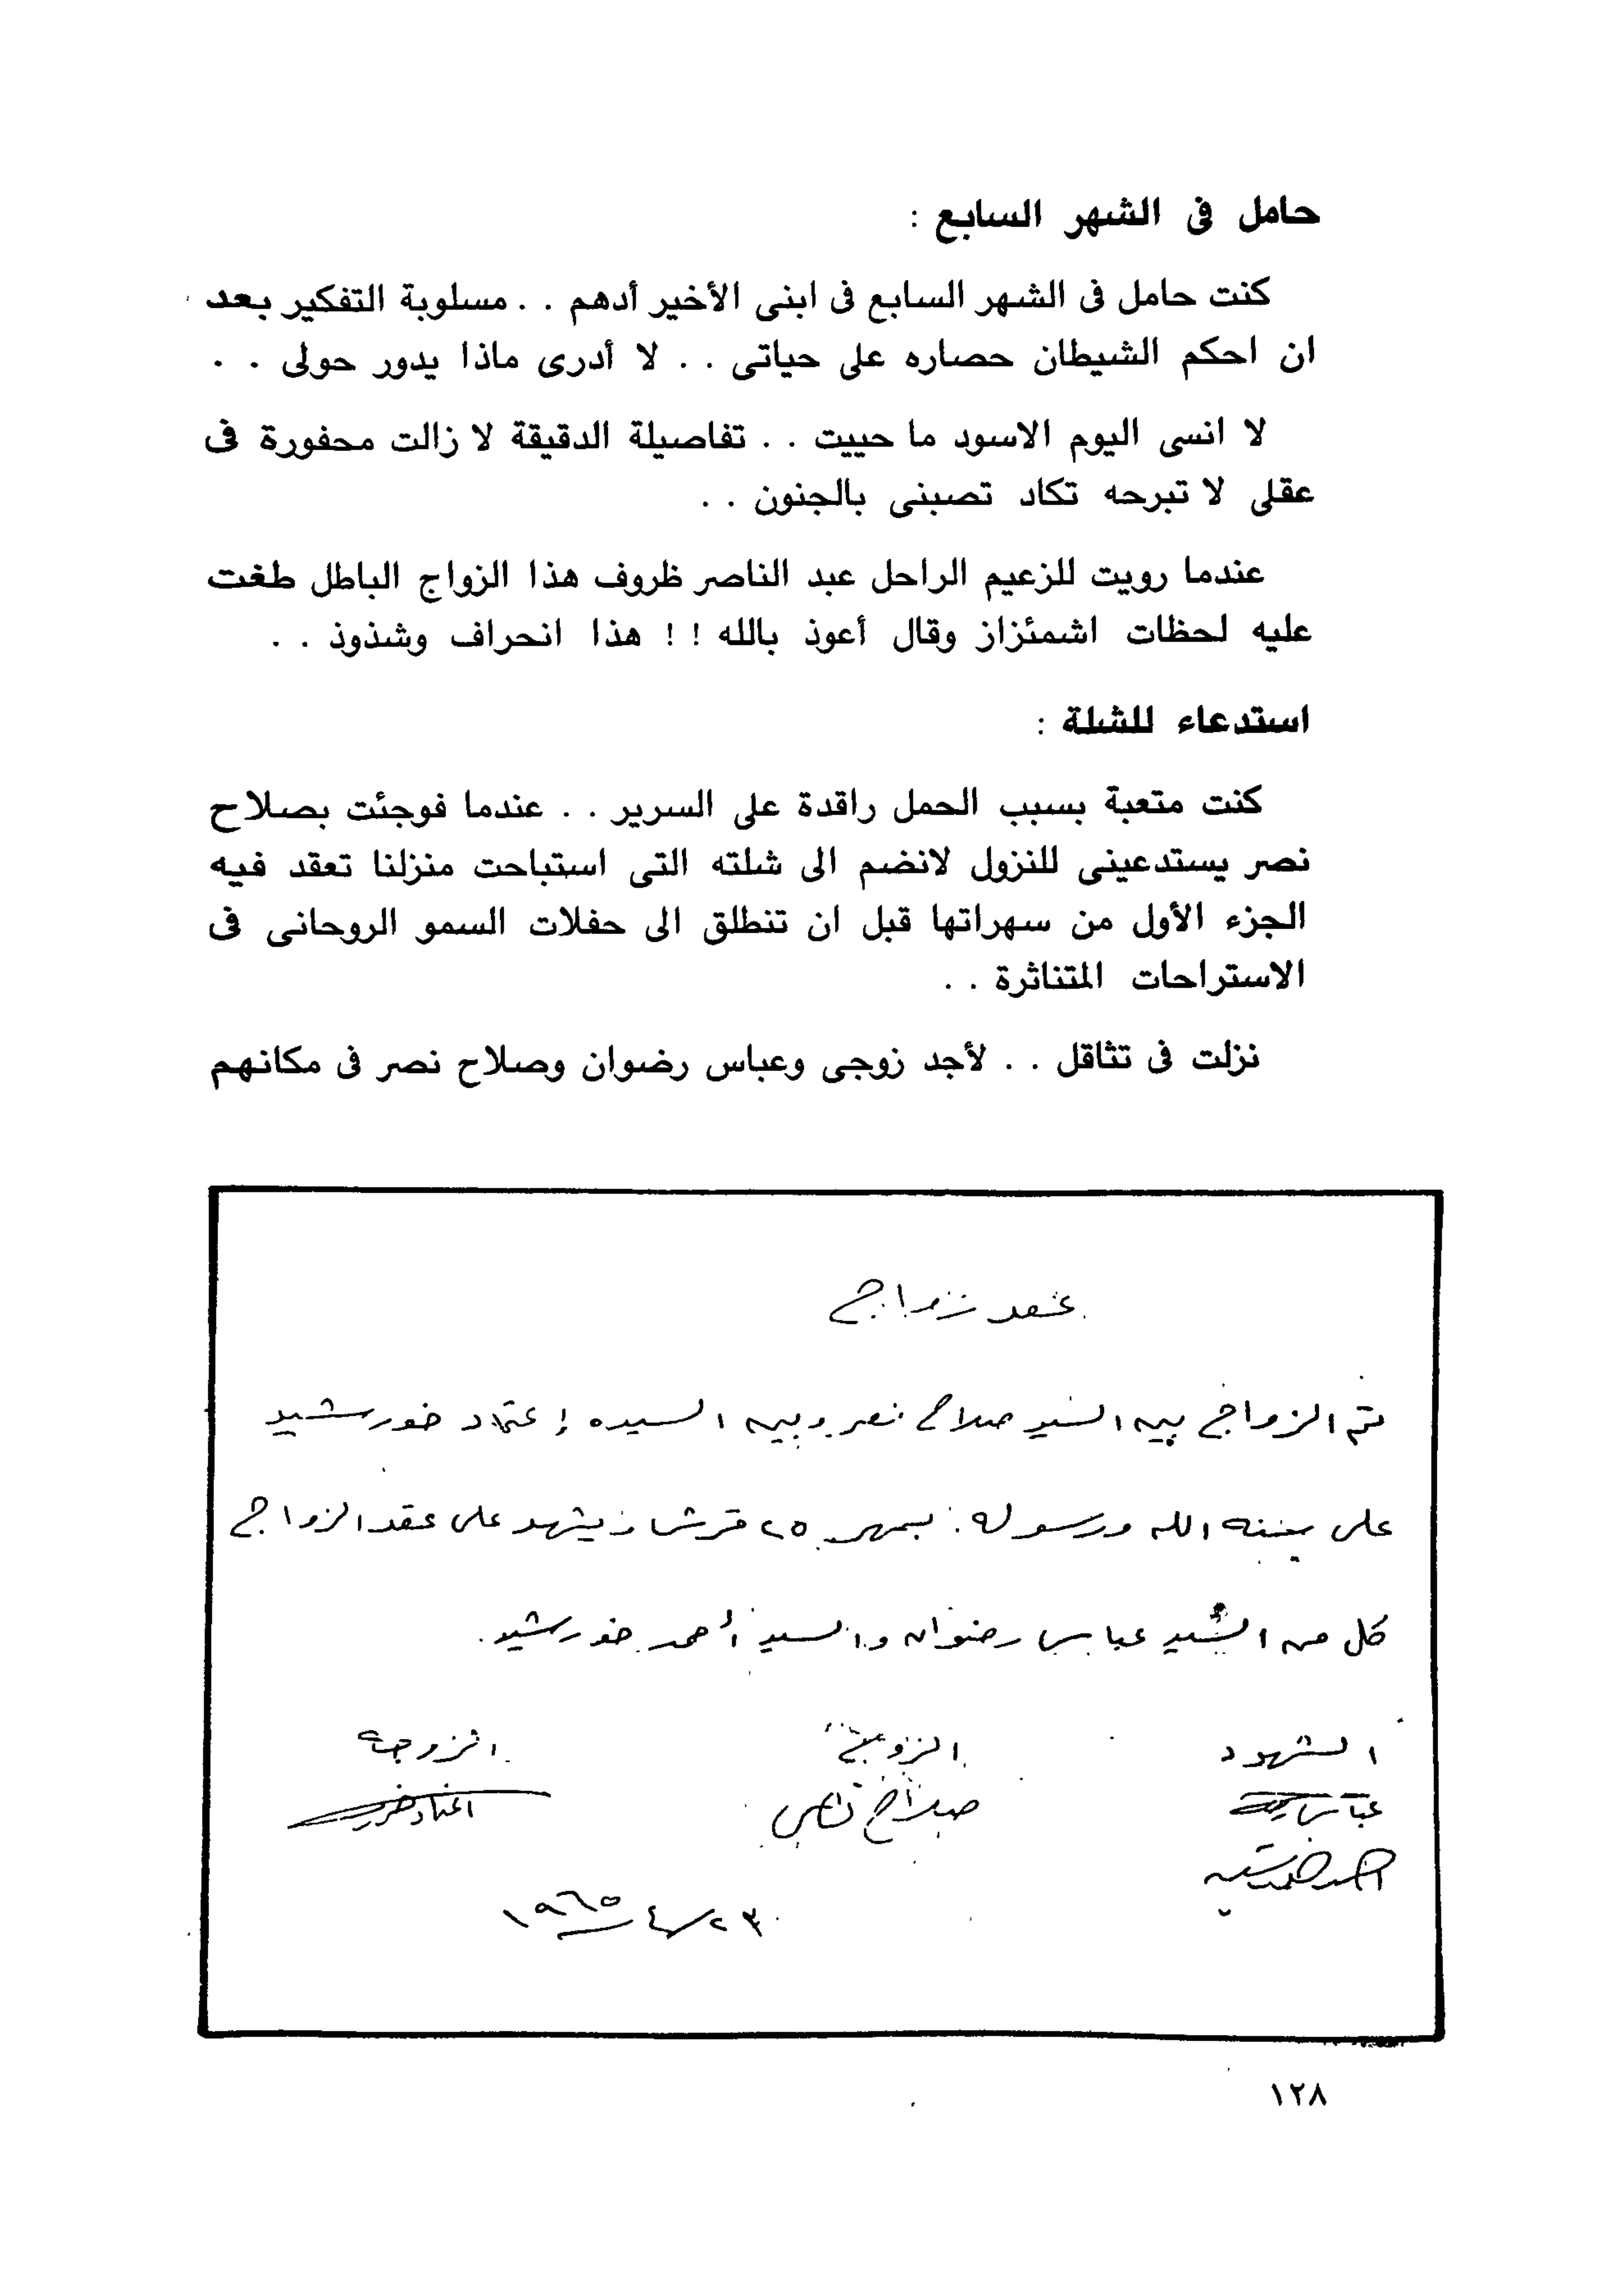 حامل فى الشهر السابع :
كنت حامل فى الشهر السابع فى ابنى الأخير أدهم . . مسلوبة التفكير بعد
ان احكم الشيطان حصاره على حياتى . . لا أدرى ماذا يدور حولى . .
لا انسى اليوم الاسود ما حييت . . تفاصيلة الدقيقة لا زالت محفورة فى
عقلى لا تبرحه تكاد تصبنى بالجنون . .
عندما رويت للزعيم الراحل عبد الناصر ظروف هذا الزواج الباطل طغت
عليه لحظات اشمئزاز وقال أعوذ بالله ! ! هذا انحراف وشذوذ . .
استدعاء للشلة :
كنت متعبة بسبب الحمل راقدة على السرير . . عندما فوجئت بصلاح
نصر يستدعينى للنزول لانضم الى شلته التى استباحت منزلنا تعقد فيه
الجزء الأول من سهراتها قبل ان تنطلق الى حفلات السمو الروحانى فى
الاستراحات المتناثرة . .
نزلت فى تثاقل . . لأجد زوجى وعباس رضوان وصلاح نصر فى مكانهم
عقد زواج
تم الزواج بين السيد صلاح نصر وبين السيده إعتماد خورشيد
على سنة الله ورسوله . بمهر ٢٥ قرشا ويشهد على عقد الزواج
كل من السيد عباس رضوان والسيد أحمد خورشيد .
الشهود الزوج الزوجة
عباس رضوان صلاح نصر اعتماد خورشيد
احمد خورشيد
٢٣/٤/١٩٦٥
١٢٨